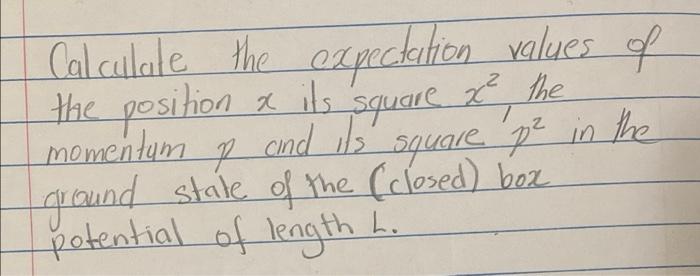 Calculate the expectation values of
the position x its square x², the
momentum p and its square p² in the
ground state of the (closed) box
potential of length L.